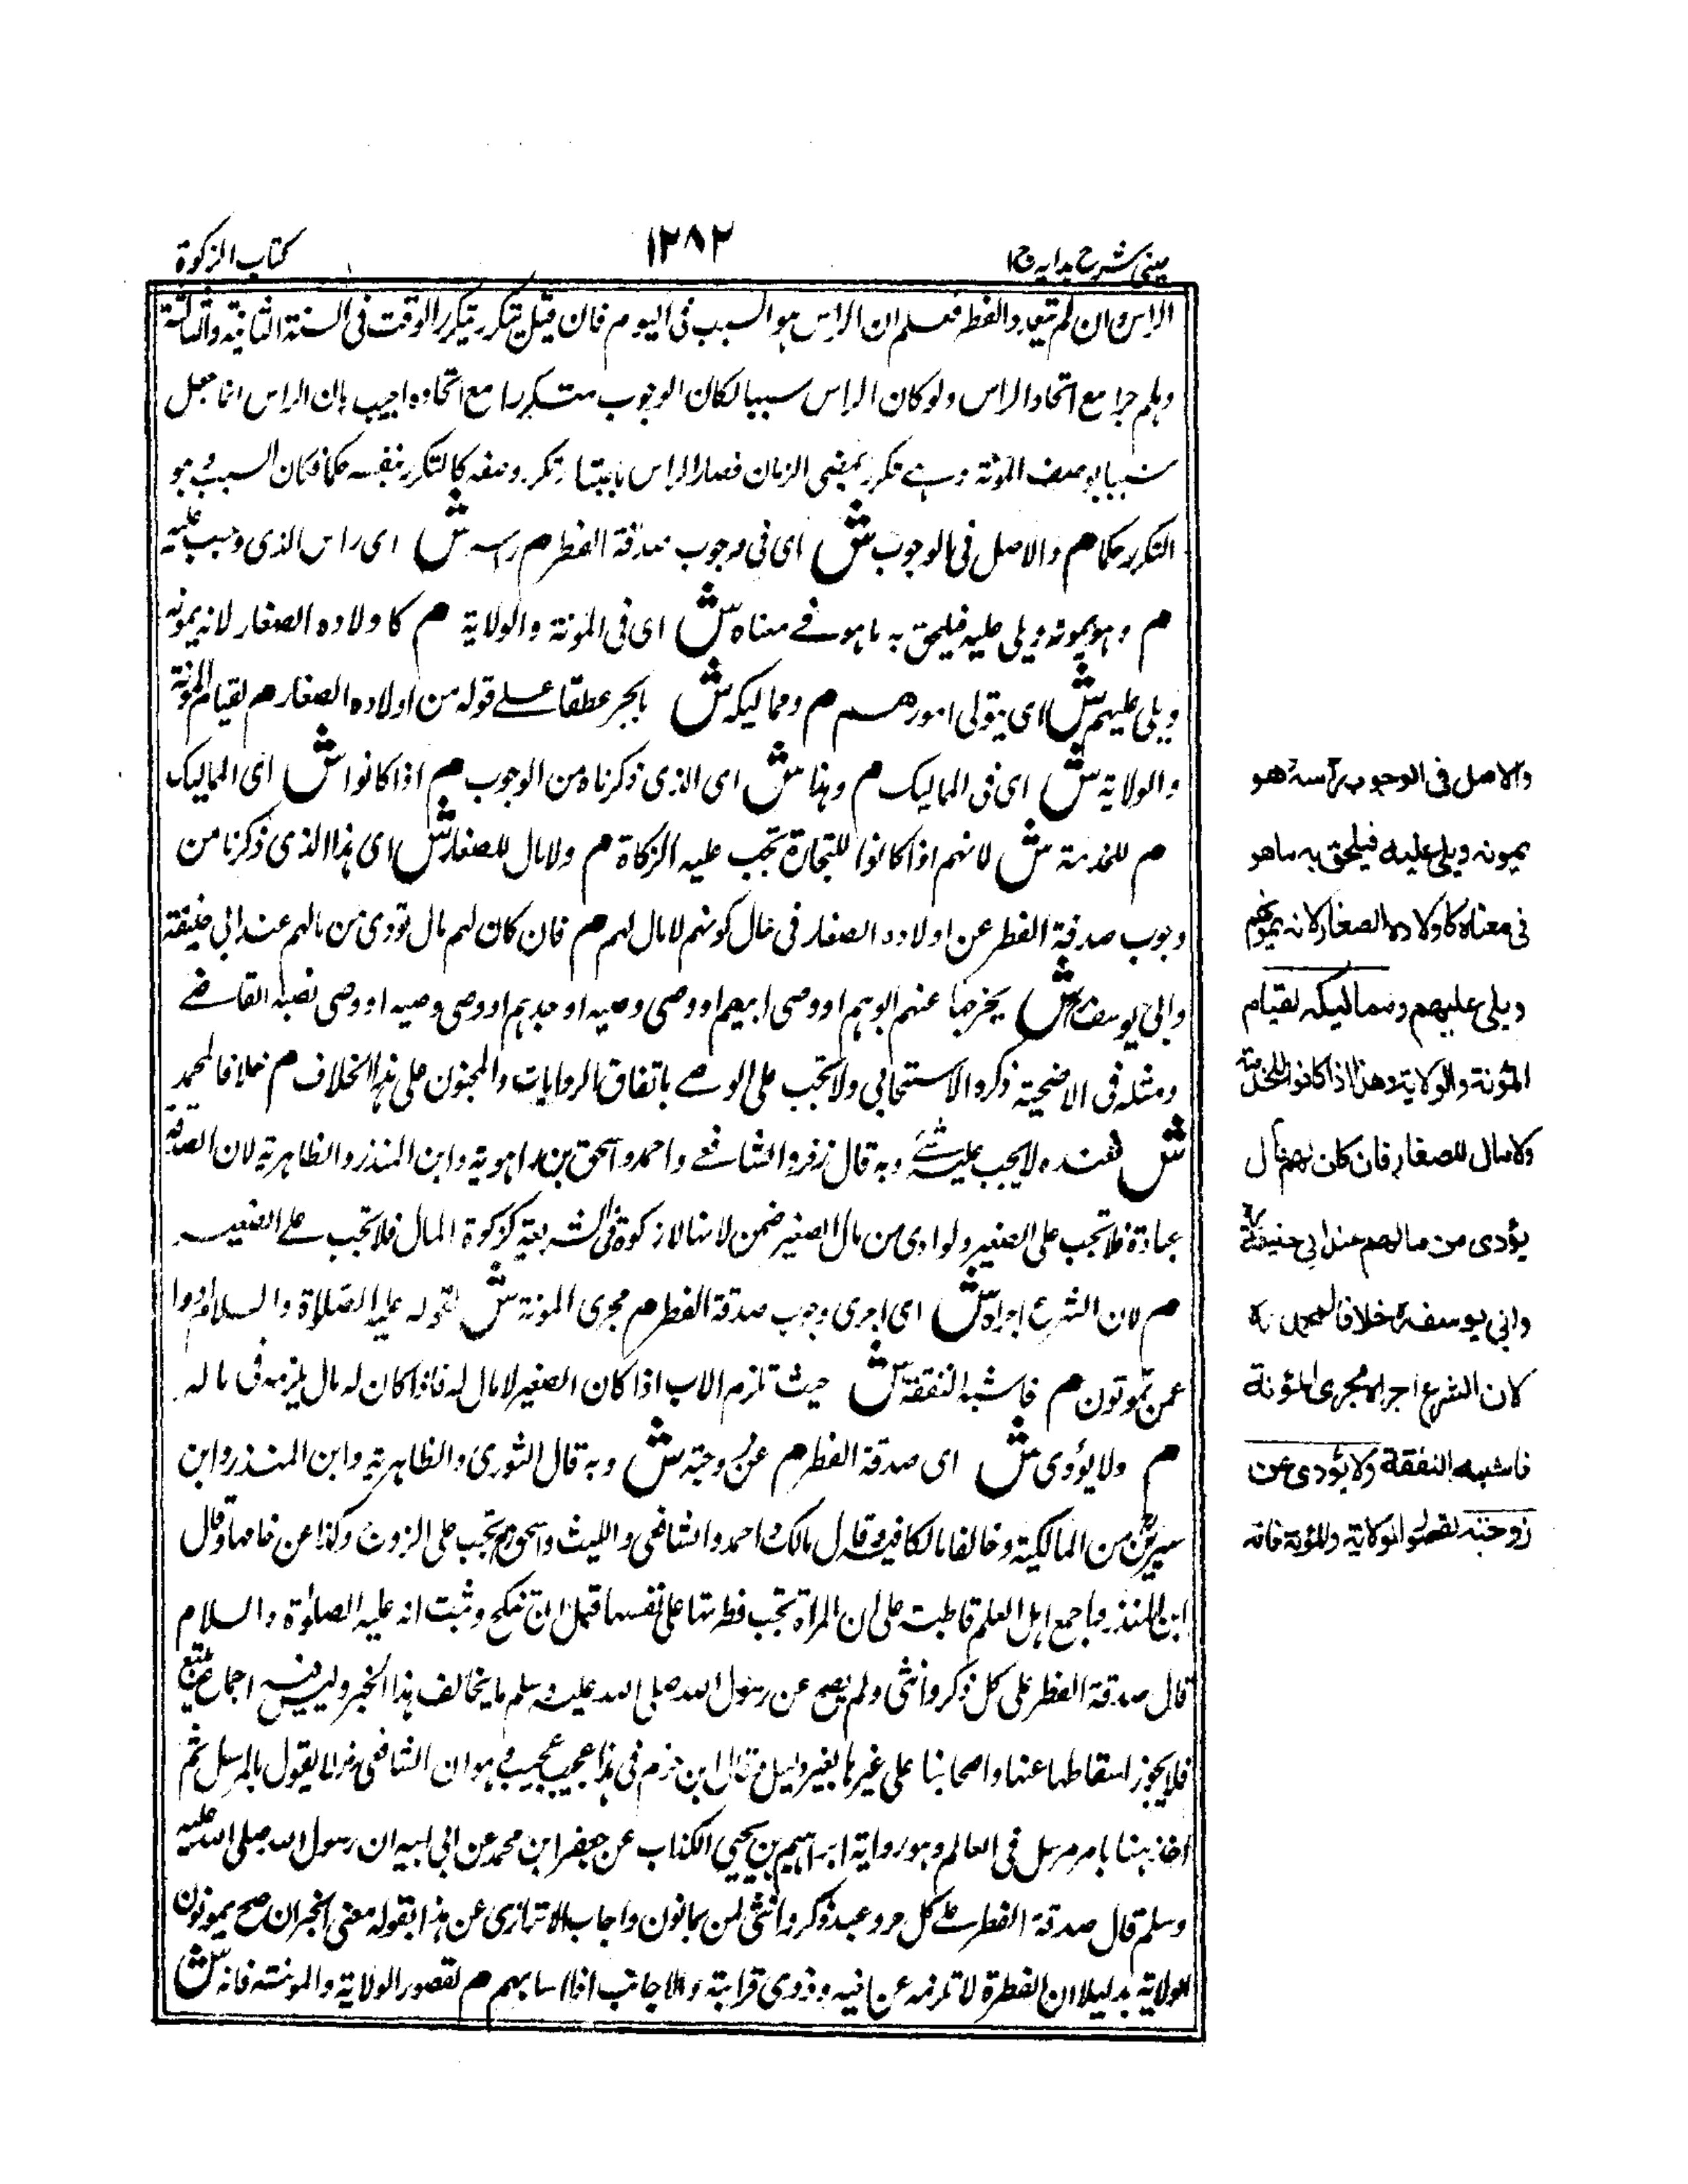 عینی شرح ہدایہ ج۱
۱۲۸۲
کتاب الزکوة
الراس وان لم یتعدد الفطر فعلم ان الراس ہو السبب فی الیوم فان قیل یتکرر بتکرر الوقت فی السنة الثانیة والثالثة
وہلم جرا مع اتحاد الراس ولو کان الراس سببا لکان الوجوب متکررا مع اتحاده اجیب بان الراس انما جعل
سببا بوصف المؤنة وہے تکرر بمضی الزمان فصار الراس باعتبار تکرر وصفه کالتکرر بنفسه حکما فکان السبب ہو
التکرر حکما م والاصل فی الوجوب ش ای فی وجوب صدقة الفطر م راسه ش ای راس الذی وجب علیه
م وہو یمونه ویلی علیه فیلحق به ما ہو فے معناه ش ای فی المؤنة والولایة م کاولاده الصغار لانه یمونه
ویلی علیهم ش ای یتولی امورهم م وممالیکه ش بالجر عطفا علے قوله من اولاده الصغار م لقیام المؤنة
والولایة ش ای فی الممالیک م وہذا ش ای الذی ذکرناه من الوجوب م اذا کانوا ش ای الممالیک
م للخدمة ش لانهم اذا کانوا للتجارة تجب علیه الزکاة م ولا مال للصغار ش ای ہذا الذی ذکرنا من
وجوب صدقة الفطر عن اولاده الصغار فی حال کونهم لا مال لهم م فان کان لهم مال تودی من مالهم عند ابی حنیفة
وابی یوسف ش یخرجها عنهم ابوہم او وصی ابیهم او وصی وصیه او جدہم او وصی وصیه او وصی نصبه القاضے
ومثله فی الاضحیة ذکره الاسبیجابی ولا تجب علی الوصے باتفاق الروایات والمجنون علی ہذا الخلاف م خلافا لمحمد
ش فعنده لا یجب علیه شئ وبه قال زفر والشافعے واحمد واسحق بن راہویة وابن المنذر والظاہریة لان الصدقة
عبادة فلا تجب علی الصغیر ولو ادی من مال الصغیر ضمن لانها زکوة فی الشریعة کزکوة المال فلا تجب علے الصغیر
م لان الشرع اجراه ش ای اجری وجوب صدقة الفطر م مجری المونة ش لقوله علیه الصلاة والسلام ادوا
عمن تمونون م فاشبه النفقة ش حیث تلزم الاب اذا کان الصغیر لا مال له فاذا کان له مال یلزمه فی ماله
م ولا یؤدی ش ای صدقة الفطر م عن زوجته ش وبه قال الثوری والظاہریة وابن المنذر وابن
سیرین من المالکیة وخالفا مالکا فیه وقال مالک واحمد والشافعی واللیث واسحق تجب علی الزوج وکذا عن خادمها وقال
ابن المنذر واجمع اہل العلم قاطبة علی ان المراة تجب فطرتها علی نفسها قبل ان تنکح وثبت انه علیه الصلوة والسلام
قال صدقة الفطر علی کل ذکر وانثی ولم یصح عن رسول الله صلی الله علیه وسلم ما یخالف ہذا الخبر ولیس فیه اجماع یتبع
فلا یجوز اسقاطها عنها وایجابها علی غیرہا بغیر دلیل وقال ابن حزم فی ہذا عجب عجیب وہو ان الشافعی لا یقول بالمرسل ثم
اخذ ہهنا بامر مرسل فی العالم وہو روایة ابراہیم بن یحیی الکذاب عن جعفر ابن محمد عن ابیه ان رسول الله صلی الله علیه
وسلم قال صدقة الفطر علے کل حر وعبد ذکر وانثی لمن تمانون واجاب الاترازی عن ہذا بقوله معنی الخبر ان صح یمونون
الولایة بدلیل ان الفطرة لا تلزمه عن اخیه وذوی قرابته والاجانب اذا م لقصور الولایة والمونة فانه ش
والاصل فی الوجوب راسه وهو
یمونه ویلی علیه فیلحق به ما هو
فی معناه کاولاده الصغار لانه یمونهم
ویلی علیهم وممالیکه لقیام
المؤنة والولایة وهذا اذا کانوا للخدمة
ولا مال للصغار فان کان لهم مال
یؤدی من مالهم عند ابی حنیفة
وابی یوسف خلافا لمحمد
لان الشرع اجراه مجری المؤنة
فاشبه النفقة ولا یؤدی عن
زوجته لقصور الولایة والمؤنة فانه